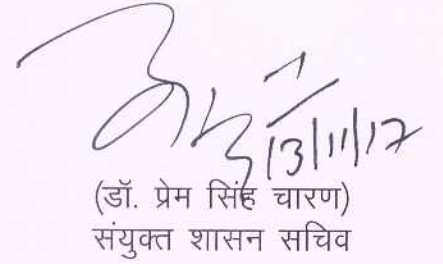 13/11/17
(डॉ. प्रेम सिंह चारण)
संयुक्त शासन सचिव